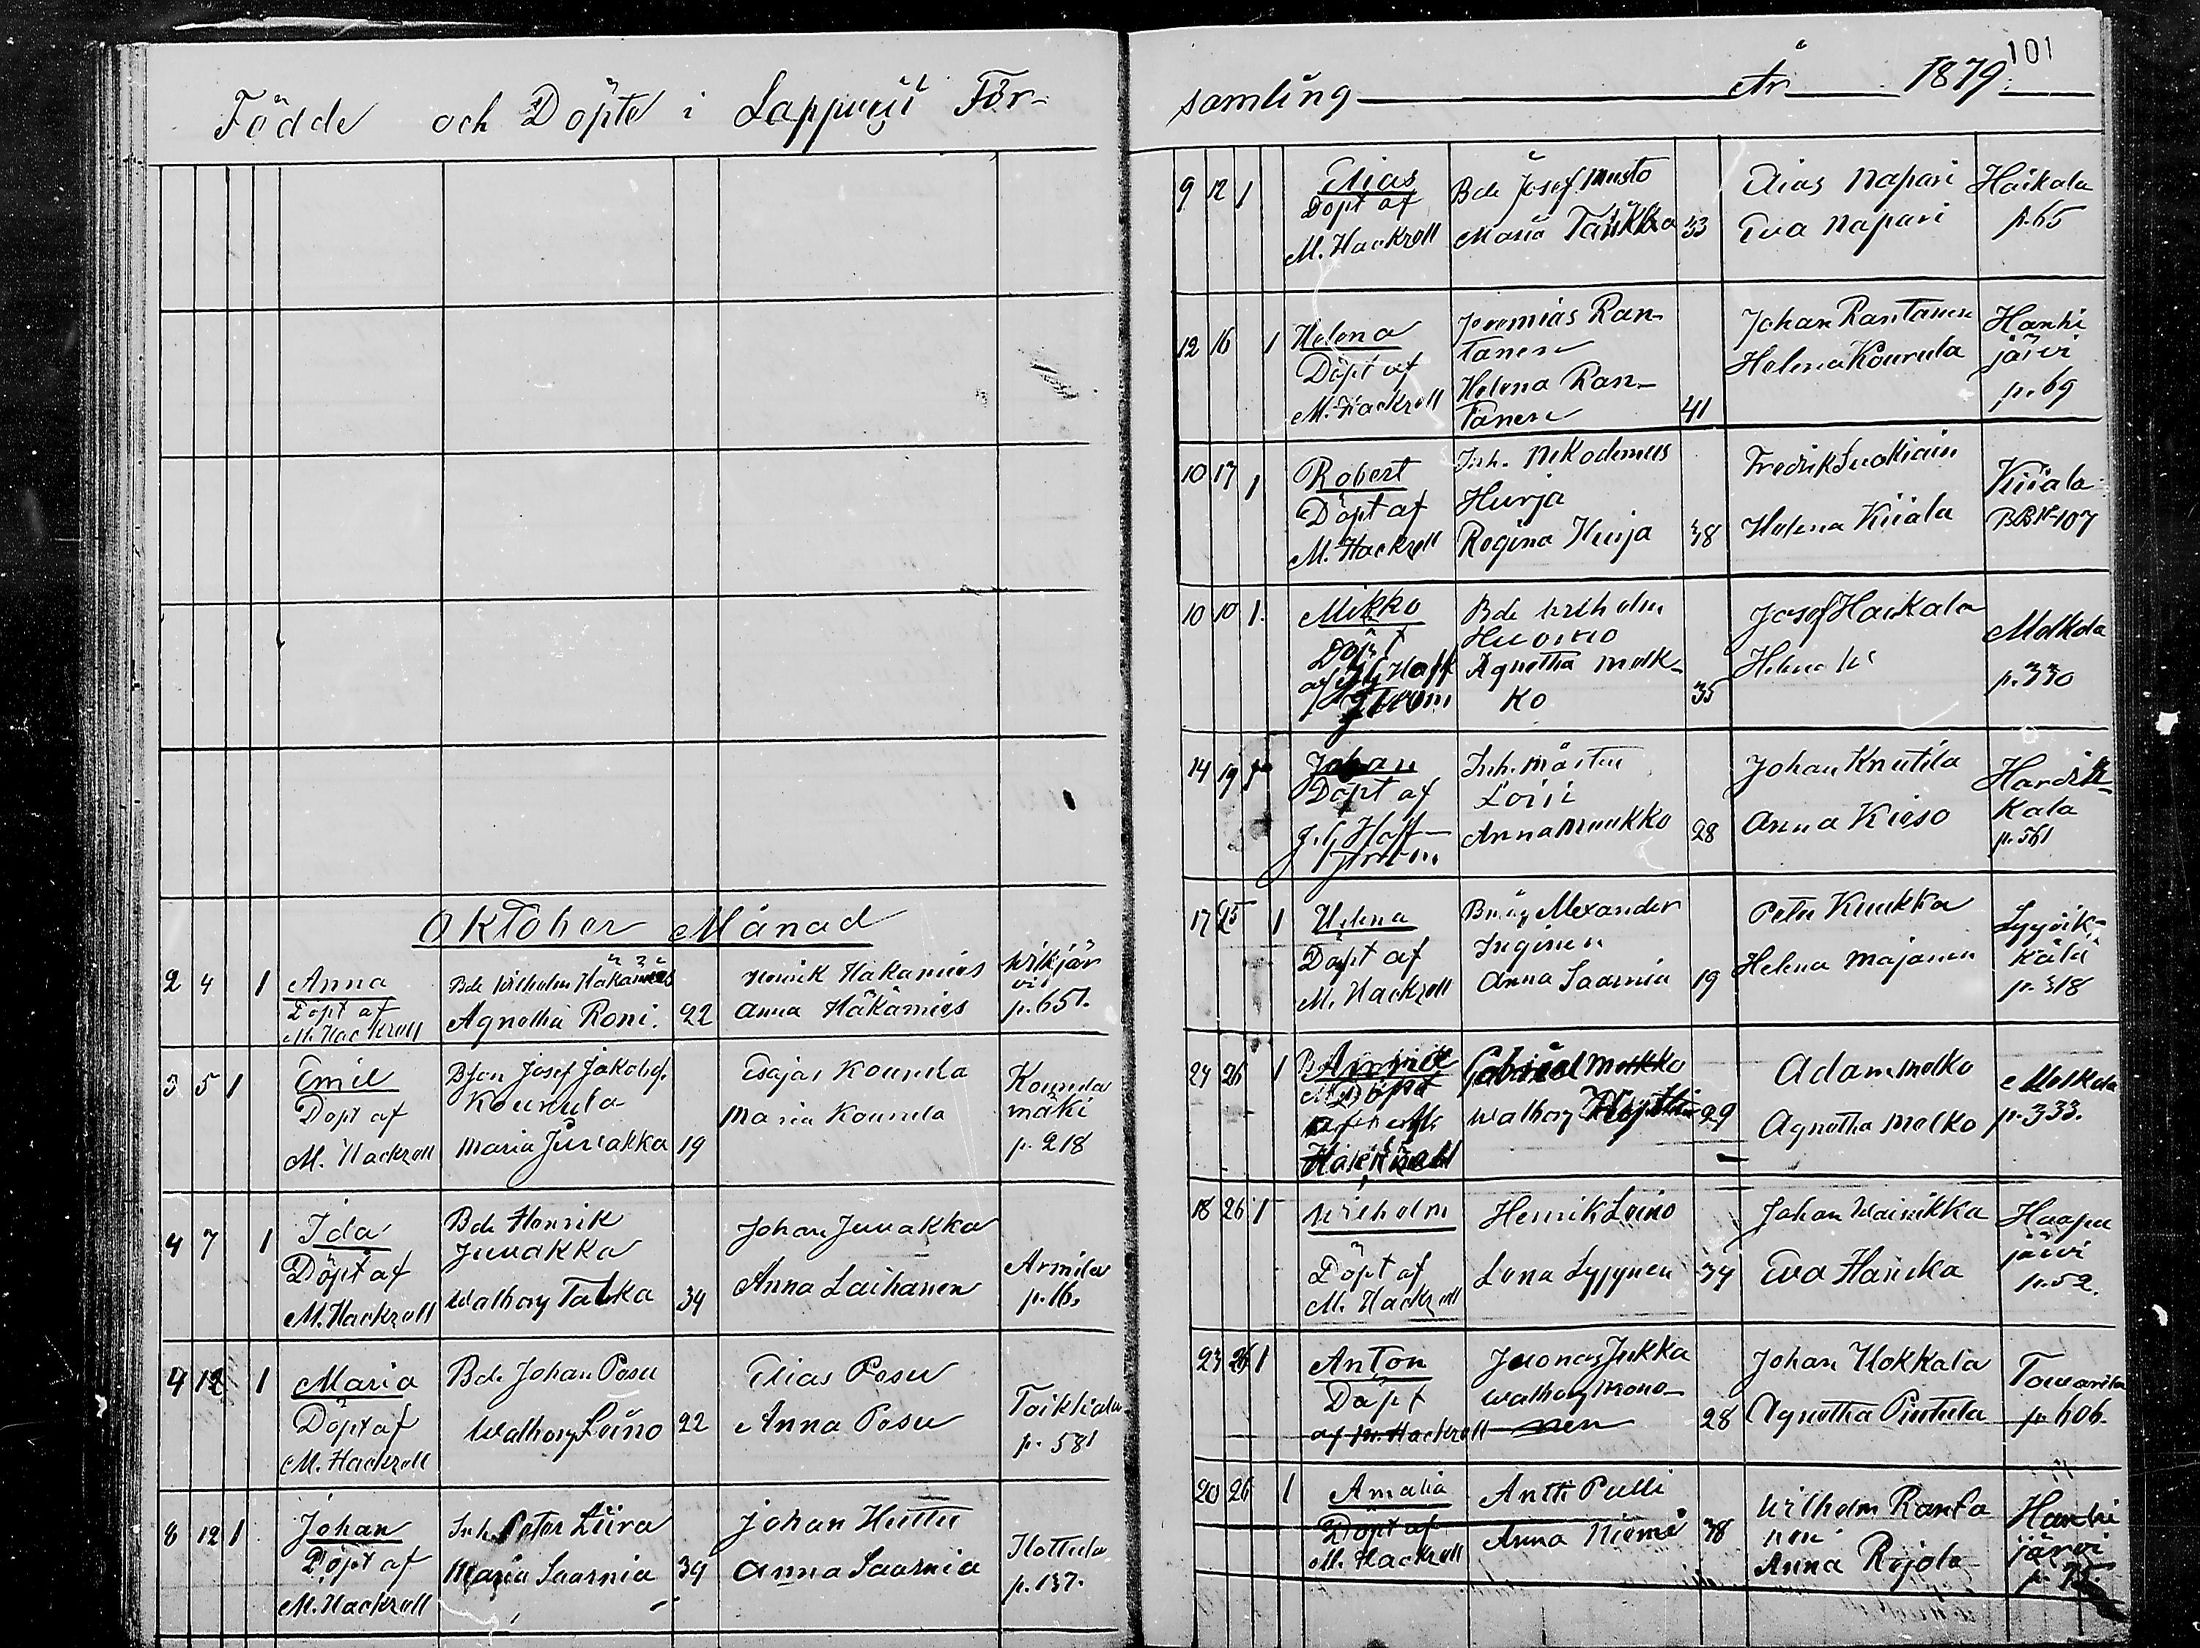 Födde och Döpte i Lappvesi För-
samling År 1879.
101
Oktober Månad
2 4 1 Anna Bde Wilhelm Häkämies Henrik Häkämies Wikjär
Döpt af Agnetha Roni. 22 Anna Häkämies vi
M. Hackzell p. 651.
3 5 1 Emil Bson Josef Jakobsf. Esajas Kourula Kourula
Döpt af Kourula Maria Kourula mäki
M. Hackzell Maria Juvakka 19 p. 218
4 7 1 Ida Bde Henrik Johan Juvakka
Döpt af Juvakka Anna Laihanen Armila
M. Hackzell Walborg Talkka 34 p. 16.
4 12 1 Maria Bde Johan Posu Elias Posu Toikkala
Döpt af Walborg Leino 22 Anna Posu p. 581
M. Hackzell
8 12 1 Johan Inh. Peter Liira Johan Huttu Hottula
Döpt af Maria Saarnia 39 Anna Saarnia p. 137.
M. Hackzell
9 12 1 Elias Bde Josef Musto Elias Napari Haikala
Döpt af Maria Talikka 33 Eva Napari p. 65
M. Hackzell
12 16 1 Helena Jeremias Ran- Johan Rantanen Hanhi
Döpt af tanen Helena Kourula järvi
M. Hackzell Helena Ran- p. 69
tanen 41
10 17 1 Robert Inh. Nikodemus Fredrik Kiiala
Döpt af Hurja Helena Kiiala 107
M. Hackzell Regina Hurja 38
10 10 1. Mikko Bde Wilhelm Josef Haikala Molkola
Döpt Huomo Helena p. 330
af Hoff Agnetha Molk-
ström ko 35
14 19 1 Johan Inh. Mårten Johan Knutila
Döpt af Loisi Anna Kieso kala
J. G. Hoff- Anna Muukko 28 p. 561
ström
17 25 1 Helena Alexander Peter Kuukka
Döpt af Inginen Helena Majanen
M. Hackzell Anna Saarnia 19 p. 318
24 26 1 Anna Gabriel Molkko Adam Molko Molkola
Döpt Walborg 29 Agnetha Molko p. 333.
af M.
Hackzell
18 26 1 Wilhelm Henrik Leino Johan Wainikka Haapa
Döpt af Lena Lyyynen 34 Eva järvi
M. Hackzell p. 52.
23 26 1 Anton Juonas Jukka Johan Hokkala
Döpt Walborg Mono- Agnetha p. 606.
af M. Hackzell nen 28
20 26 1 Amalia Antti Pulli Wilhelm Ranta Hanhi
Döpt af Anna Niemi 38 nen järvi
M. Hackzell Anna Rojola p. 75.